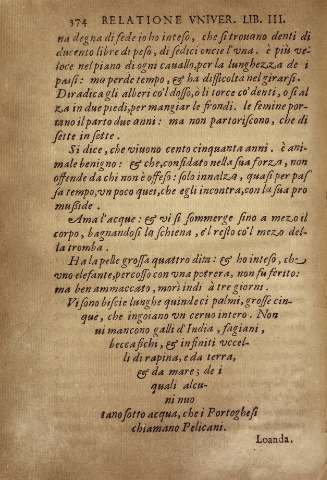 374 RELATIONE VNIVER. LIB. III.
na degna di fede io ho inteso, che si trouano denti di
ducento libre di peso, di sedici oncie l'vna. è più ve-
loce nel piano di ogni cauallo, per la lunghezza de i
passi: ma perde tempo, & ha difficoltà nel girarsi.
Diradica gli alberi co'l dosso, ò li torce co' denti, o s'al
za in due piedi, per mangiar le frondi. le femine por-
tano il parto due anni: ma non partoriscono, che di
sette in sette.
Si dice, che viuono cento cinquanta anni. è ani-
male benigno: & che, confidato nella sua forza, non
offende da chi non è offeso: solo innalza, quasi per pas
sa tempo, vn poco quei, che egli incontra, con la sua pro
muside.
Ama l'acque: & vi si sommerge sino a mezo il
corpo, bagnandosi la schiena, e'l resto co'l mezo del-
la tromba.
Ha la pelle grossa quattro dita: & ho inteso, che
vno elefante, percosso con vna petrera, non fu ferito:
ma ben ammaccato, morì indi à tre giorni.
Vi sono bestie lunghe quindeci palmi, grosse cin-
que, che ingoiano un ceruo intero. Non
ui mancono galli d'India, fagiani,
beccafichi, & infiniti vccel-
li di rapina, e da terra,
& da mare; de i
quali alcu-
ni nuo
tano sotto acqua, che i Portoghesi
chiamano Pelicani.
Loanda.